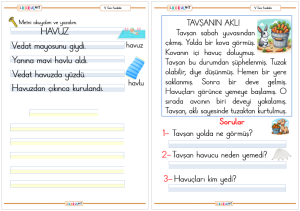 Metni okuyalım ve yazalım.
HAVUZ
Vedat mayosunu giydi.
havuz
Yanına mavi havlu aldı.
Vedat havuzda yüzdü.
havlu
Havuzdan çıkınca kurulandı.
TAVŞANIN AKLI
Tavşan sabah yuvasından
çıkmış. Yolda bir kova görmüş.
Kovanın içi havuç doluymuş.
Tavşan bu durumdan şüphelenmiş. Tuzak
olabilir, diye düşünmüş. Hemen bir yere
saklanmış. Sonra bir deve gelmiş.
Havuçları görünce yemeye başlamış. O
sırada avcının biri deveyi yakalamış.
Tavşan, aklı sayesinde tuzaktan kurtulmuş.
Sorular
1- Tavşan yolda ne görmüş?
2- Tavşan havucu neden yemedi?
3- Havuçları kim yedi?